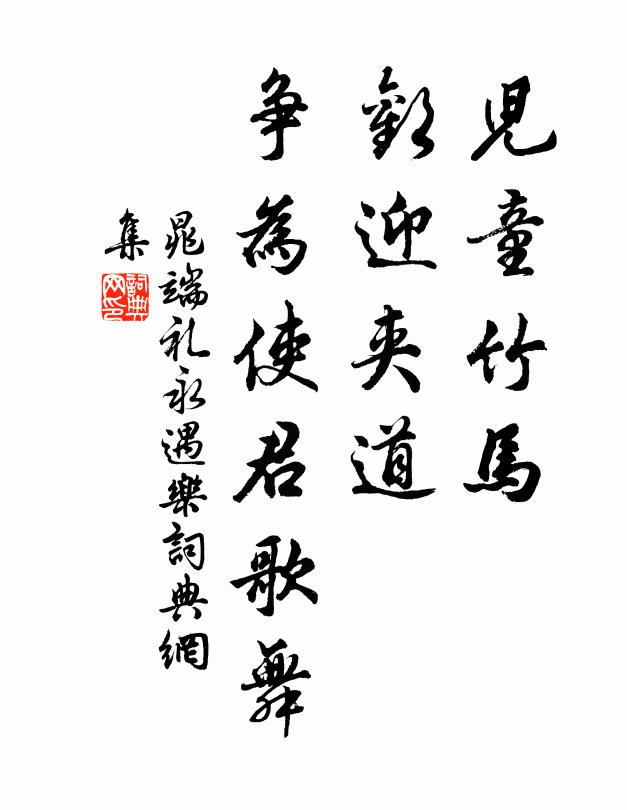 兒童竹馬
歡迎夾道
爭為使君歌舞
晁端礼永遇樂詞典網
集
詞典
网印